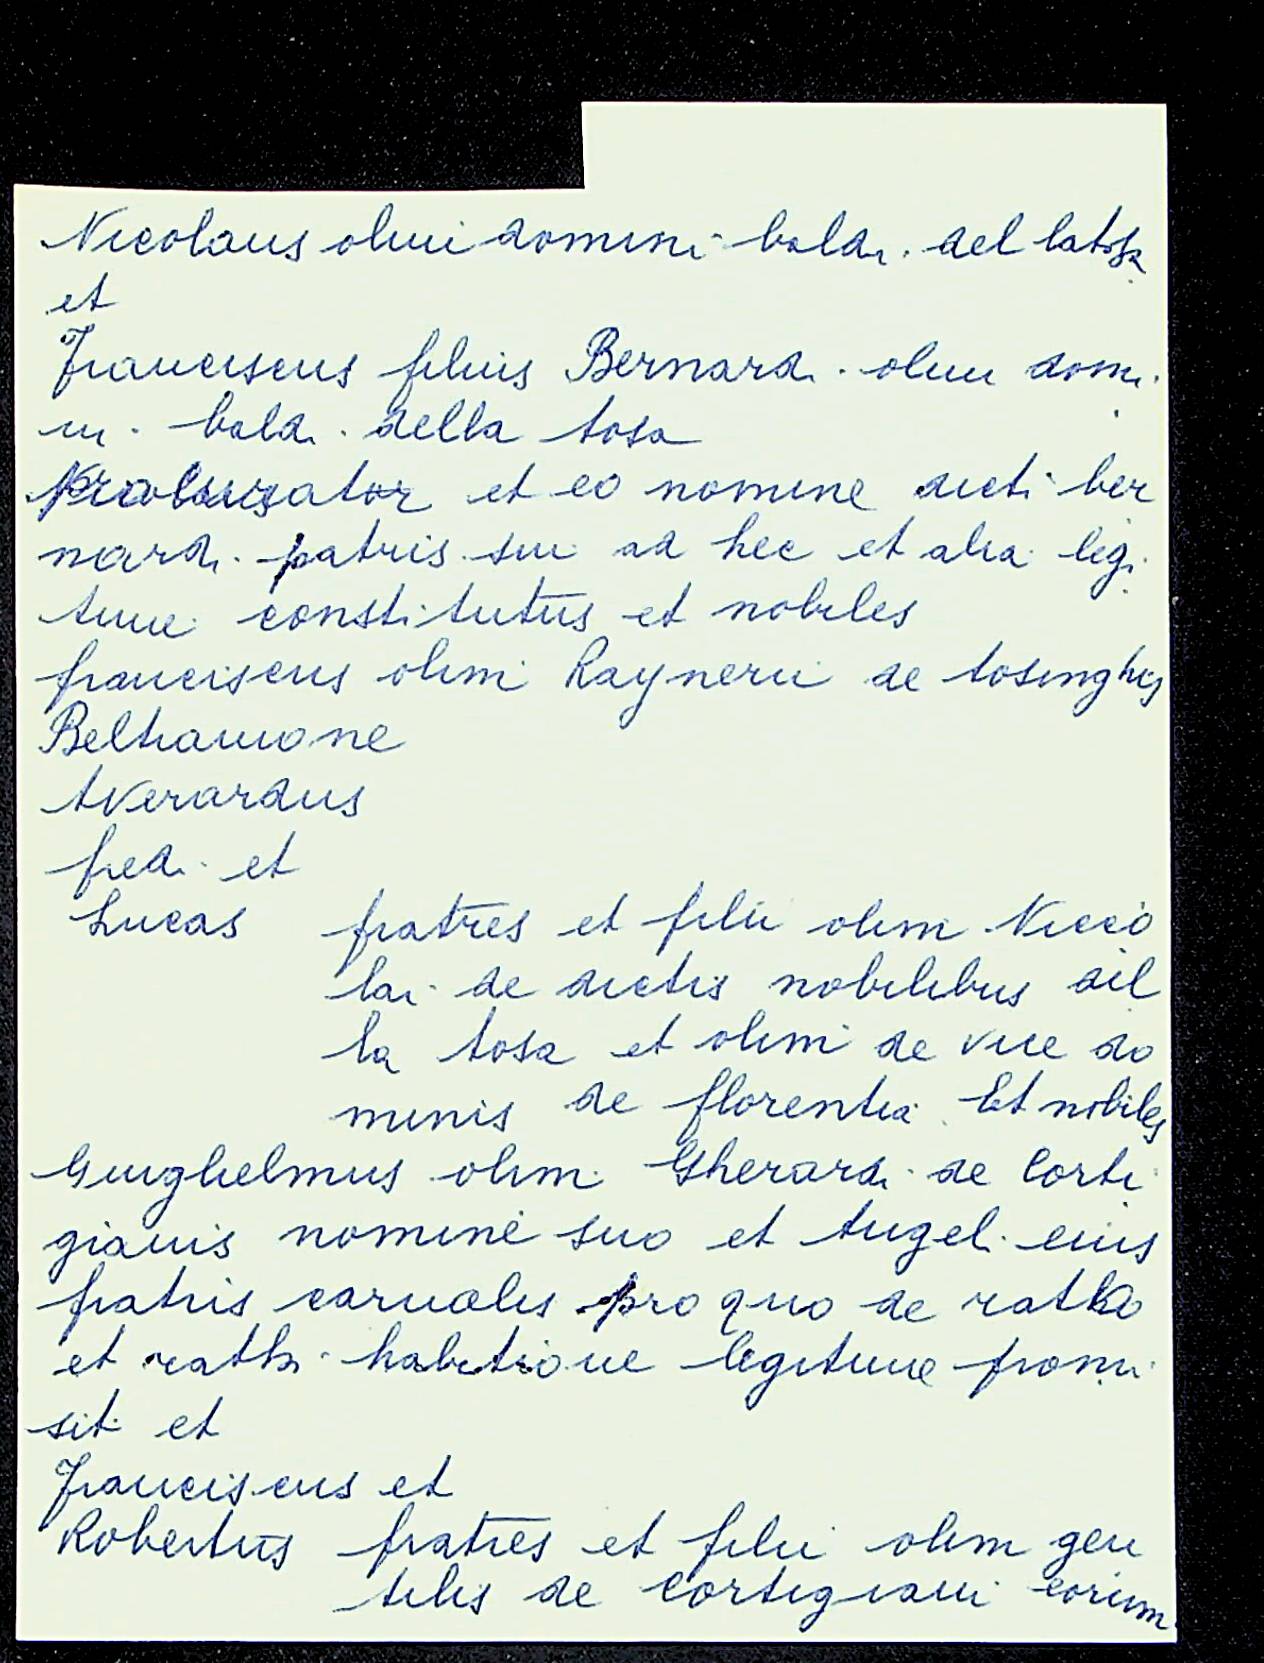 Nicolaus olim domini baldi del latosa
et
Franciscus filius Bernardi olim domi
ni baldi della tosa
procurator et eo nomine dicti ber
nardi patris sui ad hec et alia legi
time constitutus et nobiles
franciscus olim Raynerii de tosinghis
Beltramone
Averardus
fredi et
Lucas fratres et filii olim Niccò
lai de dictis nobilibus del
la tosa et olim de vice do
minis de florentia Et nobiles
Guighelmus olim Gherardi de Corti
gianis nomine suo et Angeli eius
fratris carnalis pro quo de ratho
et rathi habitione legitime promi
sit et
Franciscus et
Robertus fratres et filii olim gen
tilis de Cortigiani eorum